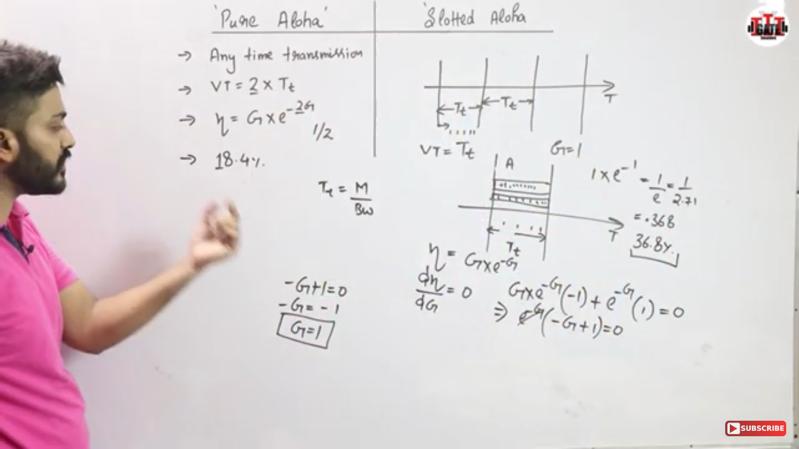 'Pure Aloha'
→ Any time transmission
→ VT = 2 × Tt
→ η = G × e^-2G
1/2
→ 18.4%.
Tt = M / BW
-G+1=0
-G = -1
G=1
'Slotted Aloha
Tt Tt
T
VT = Tt
G=1
A
T
Tt
1 × e^-1 = 1/e = 1/2.71
= .368
36.8%.
η = G×e^-G
dη/dG = 0
G×e^-G(-1) + e^-G(1) = 0
⇒ e^-G(-G+1)=0
GATE
SUBSCRIBE